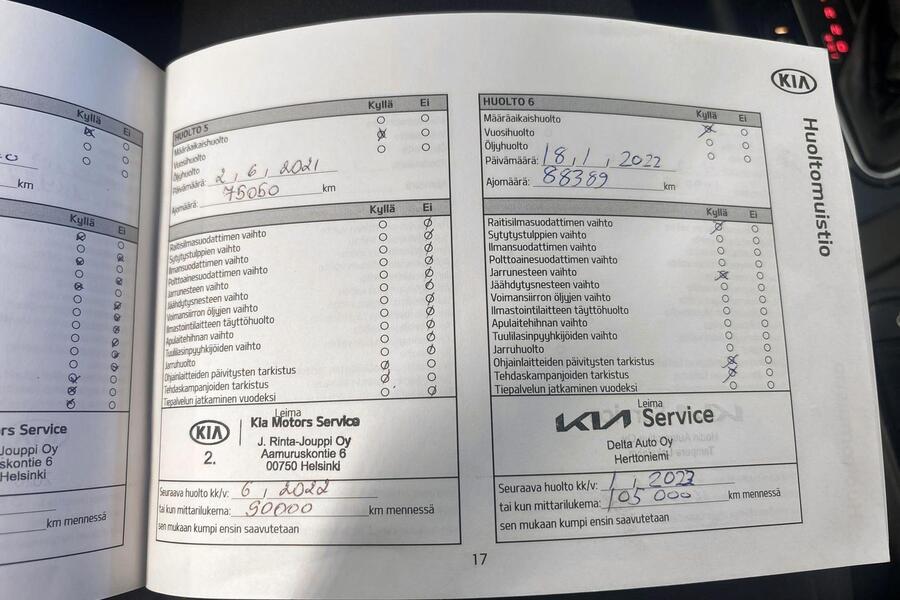 Kyllä Ei
km
Kyllä Ei
rs Service
Jouppi Oy
skontie 6
Helsinki
km mennessä
HUOLTO 5 Kyllä Ei
Määräaikaishuolto
Vuosihuolto
Öljyhuolto
Päivämäärä: 2, 6, 2021
Ajomäärä: 75050 km
Kyllä Ei
Raitisilmasuodattimen vaihto
Sytytystulppien vaihto
Ilmansuodattimen vaihto
Polttoainesuodattimen vaihto
Jarrunesteen vaihto
Jäähdytysnesteen vaihto
Voimansiirron öljyjen vaihto
Ilmastointilaitteen täyttöhuolto
Apulaitehihnan vaihto
Tuulilasinpyyhkijöiden vaihto
Jarruhuolto
Ohjainlaitteiden päivitysten tarkistus
Tehdaskampanjoiden tarkistus
Tiepalvelun jatkaminen vuodeksi
Leima
KIA Kia Motors Service
2. J. Rinta-Jouppi Oy
Aamuruskontie 6
00750 Helsinki
Seuraava huolto kk/v: 6, 2022
tai kun mittarilukema: 90000 km mennessä
sen mukaan kumpi ensin saavutetaan
KIA
Huoltomuistio
HUOLTO 6 Kyllä Ei
Määräaikaishuolto
Vuosihuolto
Öljyhuolto
Päivämäärä: 18, 1, 2022
Ajomäärä: 88389 km
Kyllä Ei
Raitisilmasuodattimen vaihto
Sytytystulppien vaihto
Ilmansuodattimen vaihto
Polttoainesuodattimen vaihto
Jarrunesteen vaihto
Jäähdytysnesteen vaihto
Voimansiirron öljyjen vaihto
Ilmastointilaitteen täyttöhuolto
Apulaitehihnan vaihto
Tuulilasinpyyhkijöiden vaihto
Jarruhuolto
Ohjainlaitteiden päivitysten tarkistus
Tehdaskampanjoiden tarkistus
Tiepalvelun jatkaminen vuodeksi
Leima
KIA Service
Delta Auto Oy
Herttoniemi
Seuraava huolto kk/v: 1, 2023
tai kun mittarilukema: 105 000 km mennessä
sen mukaan kumpi ensin saavutetaan
17